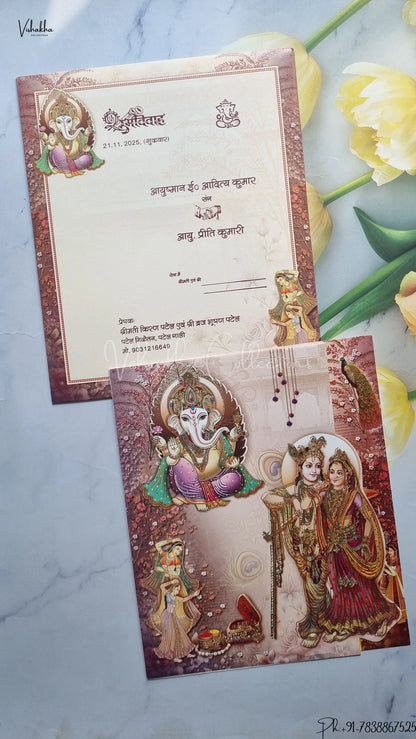 Vishakha
श्री शुभविवाह
21.11. 2025, (शुक्रवार)
आयुष्मान ई० आदित्य कुमार
संग
आयु. प्रीति कुमारी
सेवा में
श्रीमती एवं श्री
प्रेषक:
श्रीमती किरण पटेल एवं श्री ब्रज भूषण पटेल
पटेल निकेतन, पटेल गली
मो. 9031216649
Ph.+91-7838867525